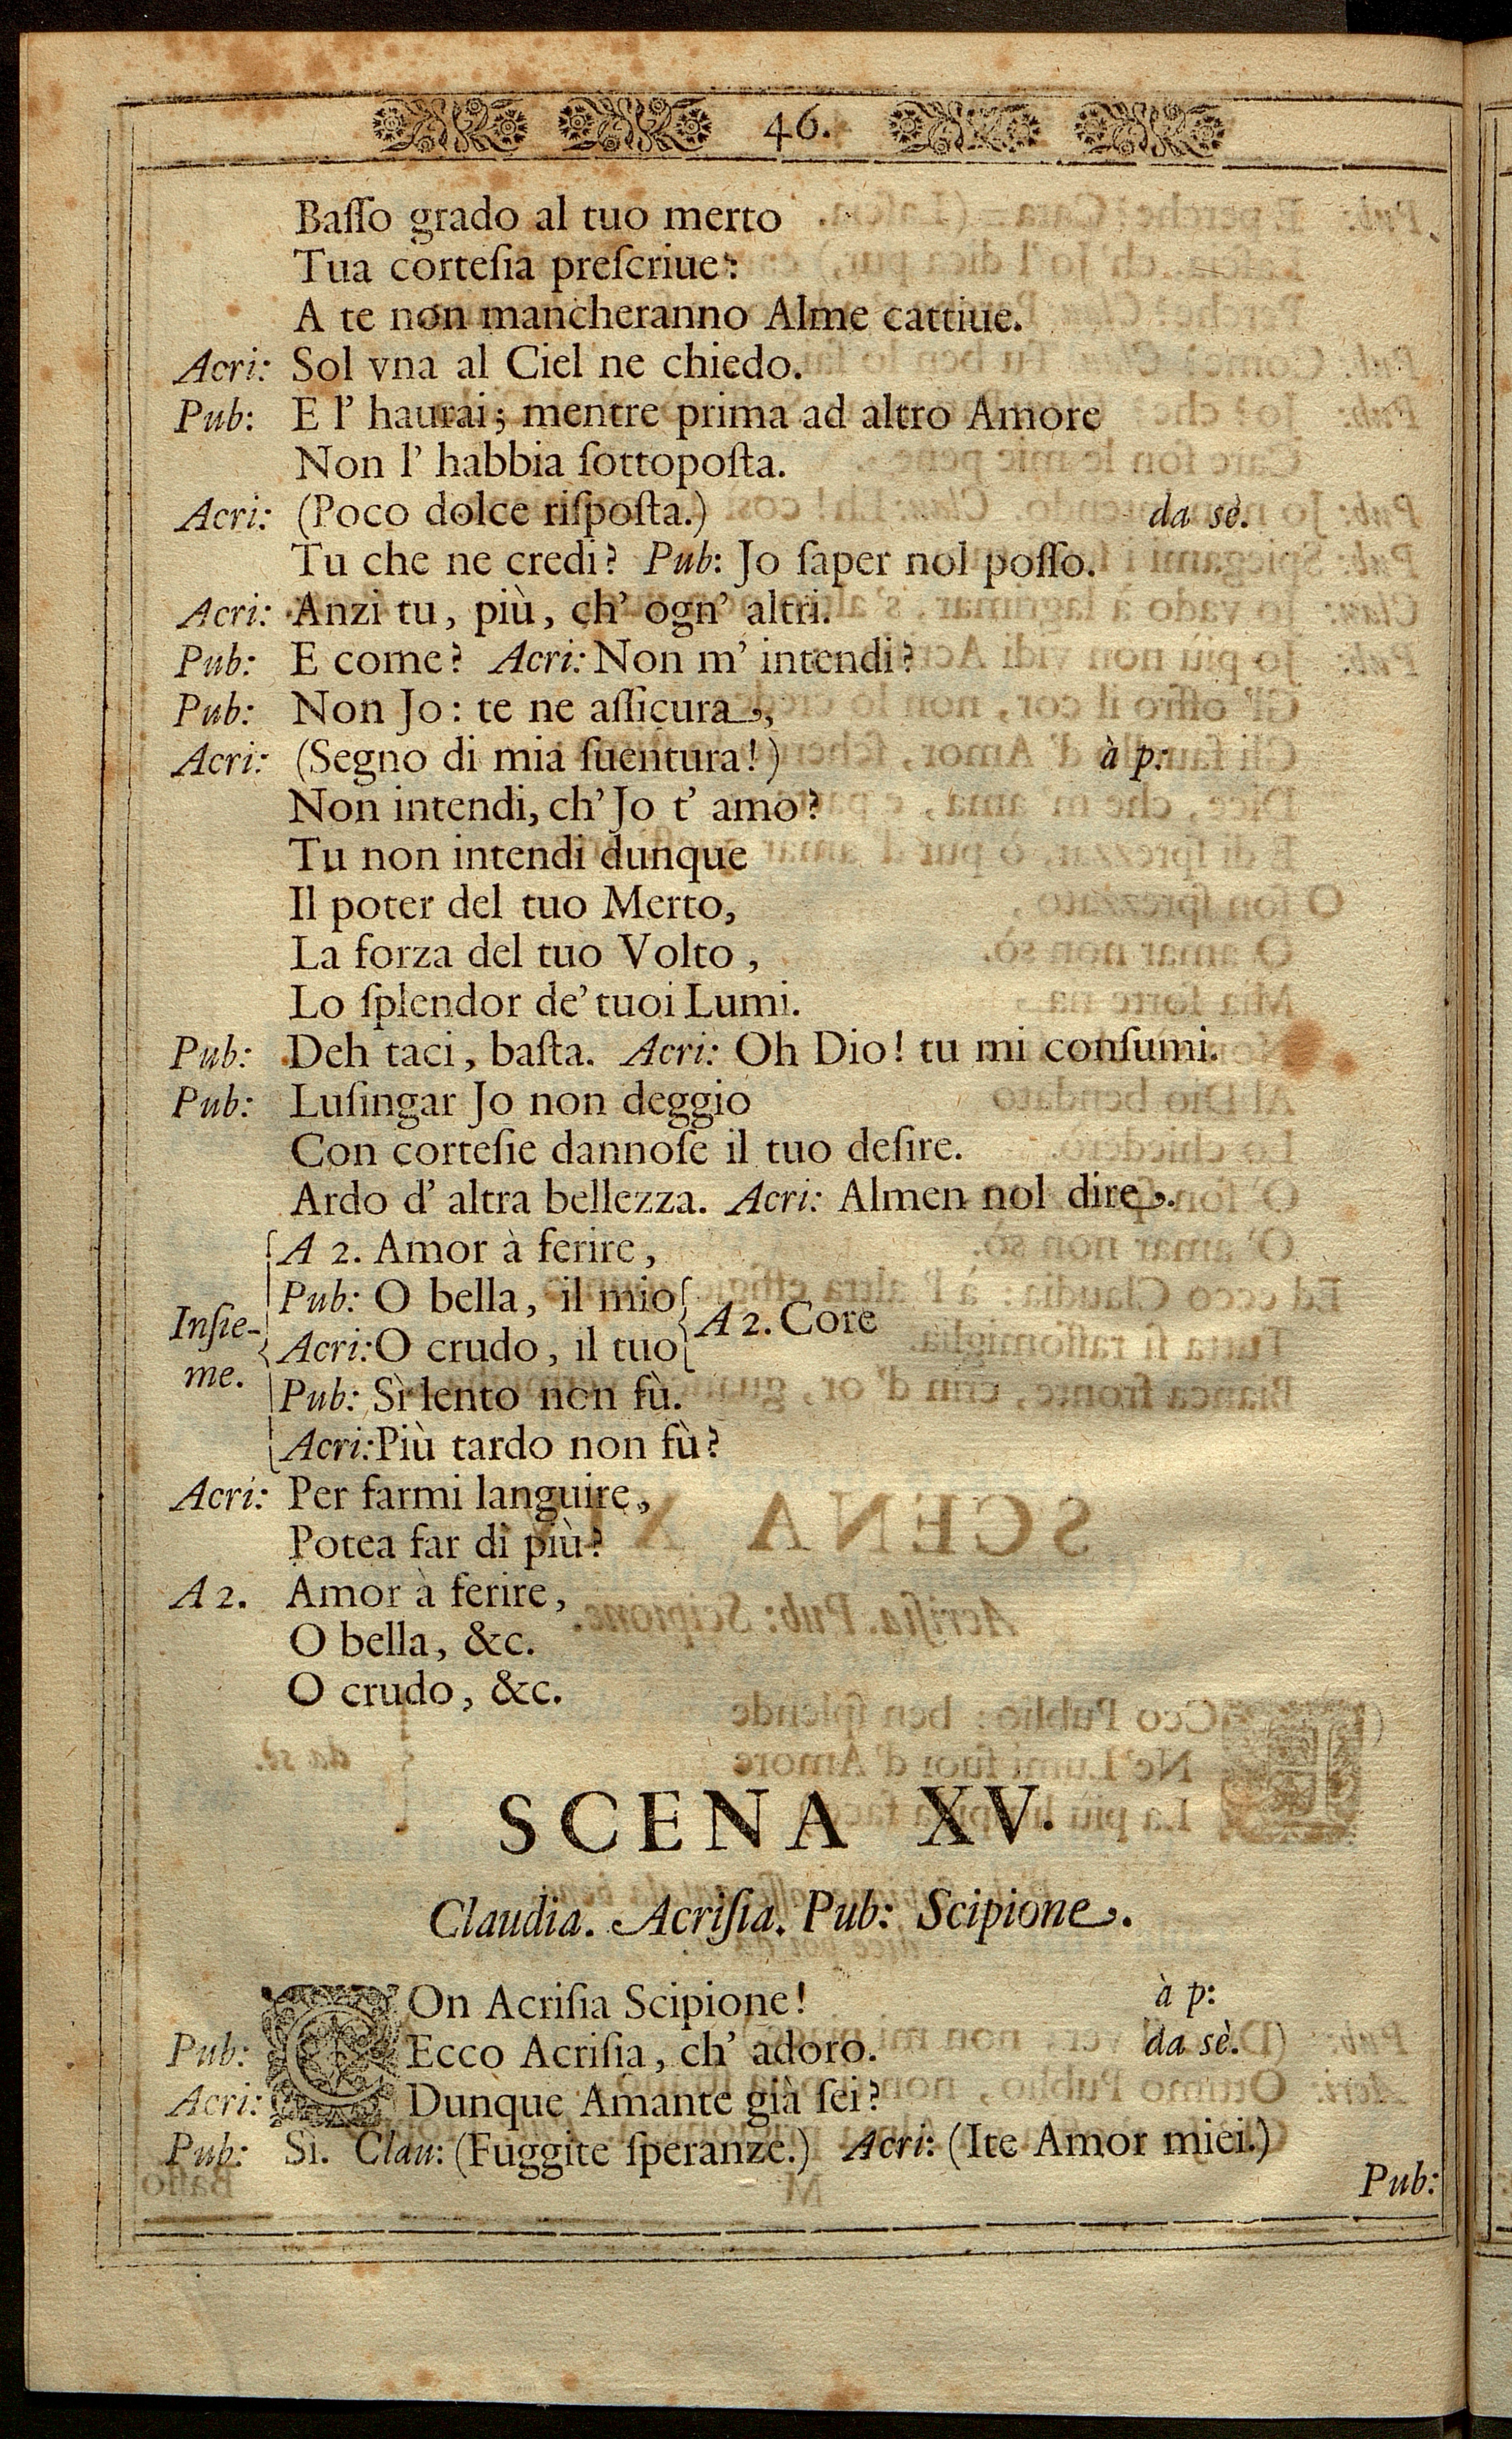 46.
Baſſo grado al tuo merto
Tua corteſia preſcriue:
A te non mancheranno Alme cattiue.
Acri: Sol vna al Ciel ne chiedo.
Pub: E l' haurai; mentre prima ad altro Amore
Non l' habbia ſottopoſta.
Acri: (Poco dolce riſpoſta.) da sè.
Tu che ne credi? Pub: Jo ſaper nol poſſo.
Acri: Anzi tu, più, ch' ogn' altri.
Pub: E come? Acri: Non m' intendi?
Pub: Non Jo: te ne aſſicura,
Acri: (Segno di mia ſuentura!) à p:
Non intendi, ch' Jo t' amo?
Tu non intendi dunque
Il poter del tuo Merto,
La forza del tuo Volto,
Lo ſplendor de' tuoi Lumi.
Pub: Deh taci, baſta. Acri: Oh Dio! tu mi conſumi.
Pub: Luſingar Jo non deggio
Con corteſie dannoſe il tuo deſire.
Ardo d' altra bellezza. Acri: Almen nol dire.
Inſie-
me.
A 2. Amor à ferire,
Pub: O bella, il mio
Acri: O crudo, il tuo
A 2. Core
Pub: Sì lento non fù.
Acri: Più tardo non fù?
Acri: Per farmi languire,
Potea far di più?
A 2. Amor à ferire,
O bella, &c.
O crudo, &c.
SCENA XV.
Claudia. Acriſia. Pub: Scipione.
COn Acriſia Scipione! à p:
Pub: Ecco Acriſia, ch' adoro. da sè.
Acri: Dunque Amante già ſei?
Pub: Sì. Clau: (Fuggite ſperanze.) Acri: (Ite Amor miei.)
Pub: